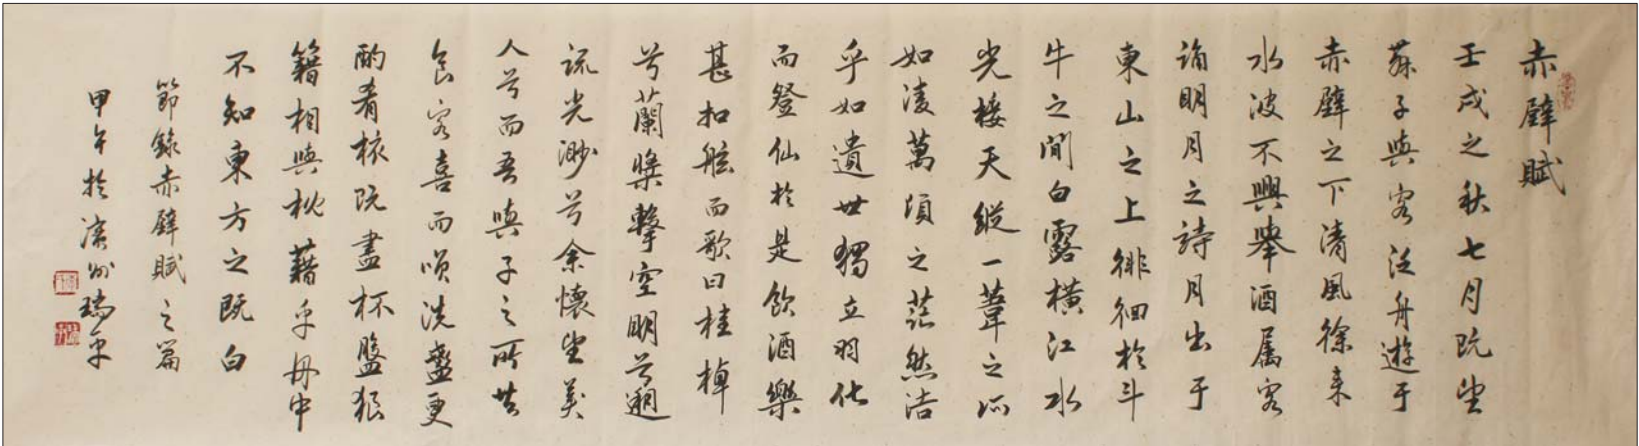 赤壁賦
壬戌之秋七月既望
蘇子與客泛舟遊于
赤壁之下清風徐来
水波不興舉酒属客
誦明月之詩月出于
東山之上徘徊於斗
牛之間白露橫江水
光接天縱一葦之所
如凌萬頃之茫然浩
乎如遺世獨立羽化
而登仙於是飲酒樂
甚扣舷而歌曰桂棹
兮蘭槳擊空明兮遡
流光渺兮余懷望美
人兮而吾與子之所共
食客喜而笑洗盞更
酌肴核既盡杯盤狼
籍相與枕藉乎舟中
不知東方之既白
節錄赤壁賦之篇
甲午於州瑞平